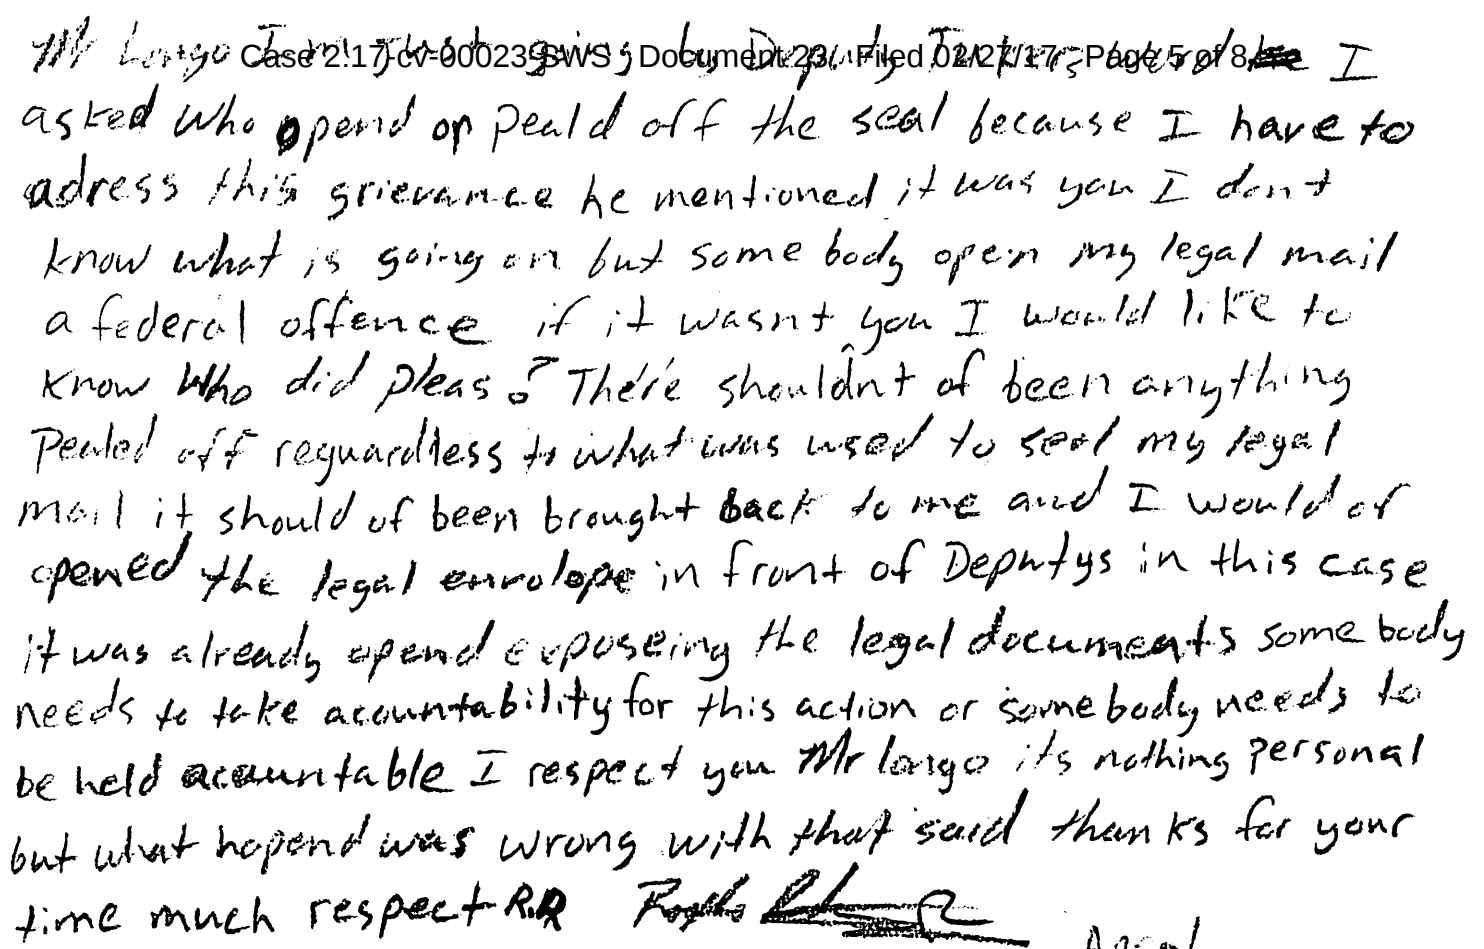 Case 2:17-cv-00023-SWS Document 23 Filed 02/27/17 Page 5 of 8
Mr Longo I'm just going by Deputy word I
asked who opend or Peald off the seal because I have to
adress this grievance he mentioned it was you I dont
know what is going on but some body open my legal mail
a federal offence if it wasnt you I would like to
know who did pleas? There shouldnt of been anything
Pealed off reguardless to what was used to seal my legal
mail it should of been brought back to me and I would of
opened the legal envolope in front of Deputys in this case
it was already opend exposeing the legal documents some body
needs to take acountability for this action or somebody needs to
be held acountable I respect you Mr longo its nothing personal
but what hapend was wrong with that said thanks for your
time much respect R.R